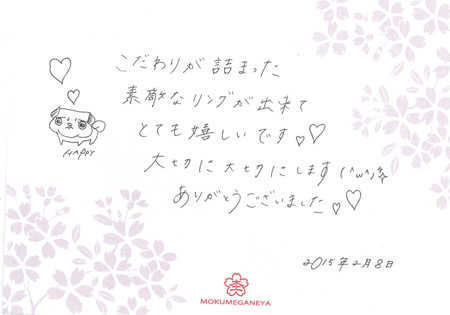 こだわりが詰まった
素敵なリングが出来て
とても嬉しいです♡♡
HAPPY
大切に大切にします(^ω^)
ありがとうございました♡♡
2015年2月8日
MOKUMEGANEYA